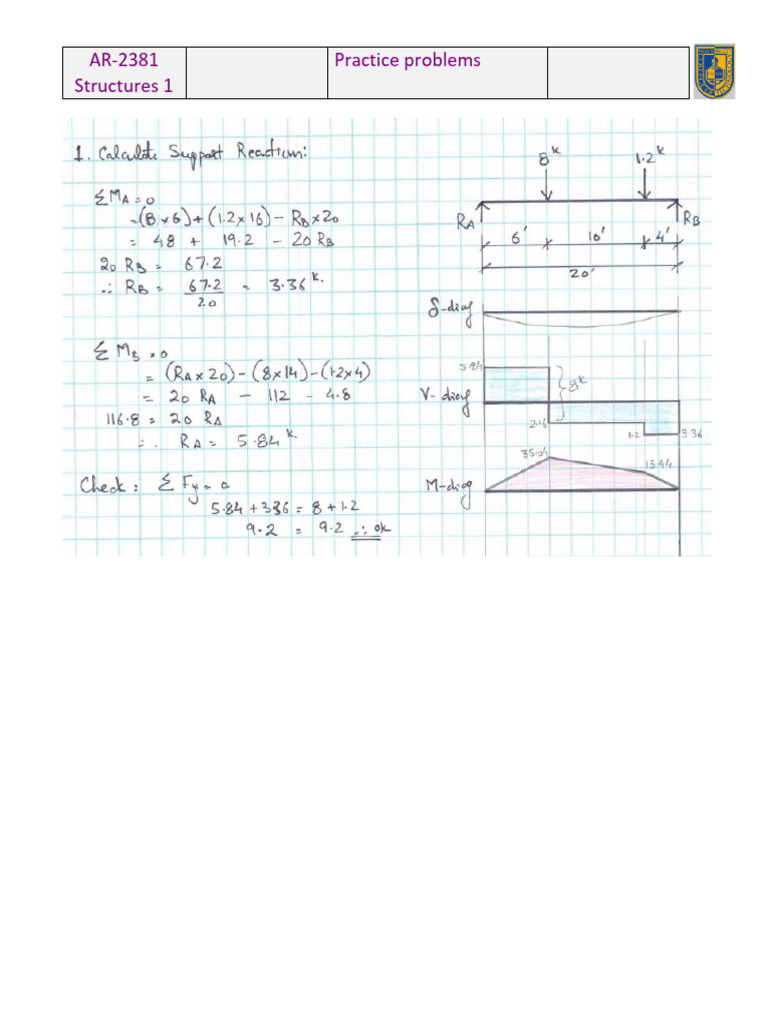 AR-2381
Structures 1
Practice problems
1. Calculate Support Reactions:
ΣMA = 0
= (8 × 6) + (1.2 × 16) - RB × 20
= 48 + 19.2 - 20 RB
20 RB = 67.2
∴ RB = 67.2 / 20 = 3.36 k.
ΣMB = 0
= (RA × 20) - (8 × 14) - (1.2 × 4)
= 20 RA - 112 - 4.8
116.8 = 20 RA
∴ RA = 5.84 k
Check: ΣFy = 0
5.84 + 3.36 = 8 + 1.2
9.2 = 9.2 ∴ OK
8 k
1.2 k
RA
RB
6' 10' 4'
20'
δ-diag
5.84
8 k
V-diag
2.16
1.2
3.36
35.04
15.44
M-diag